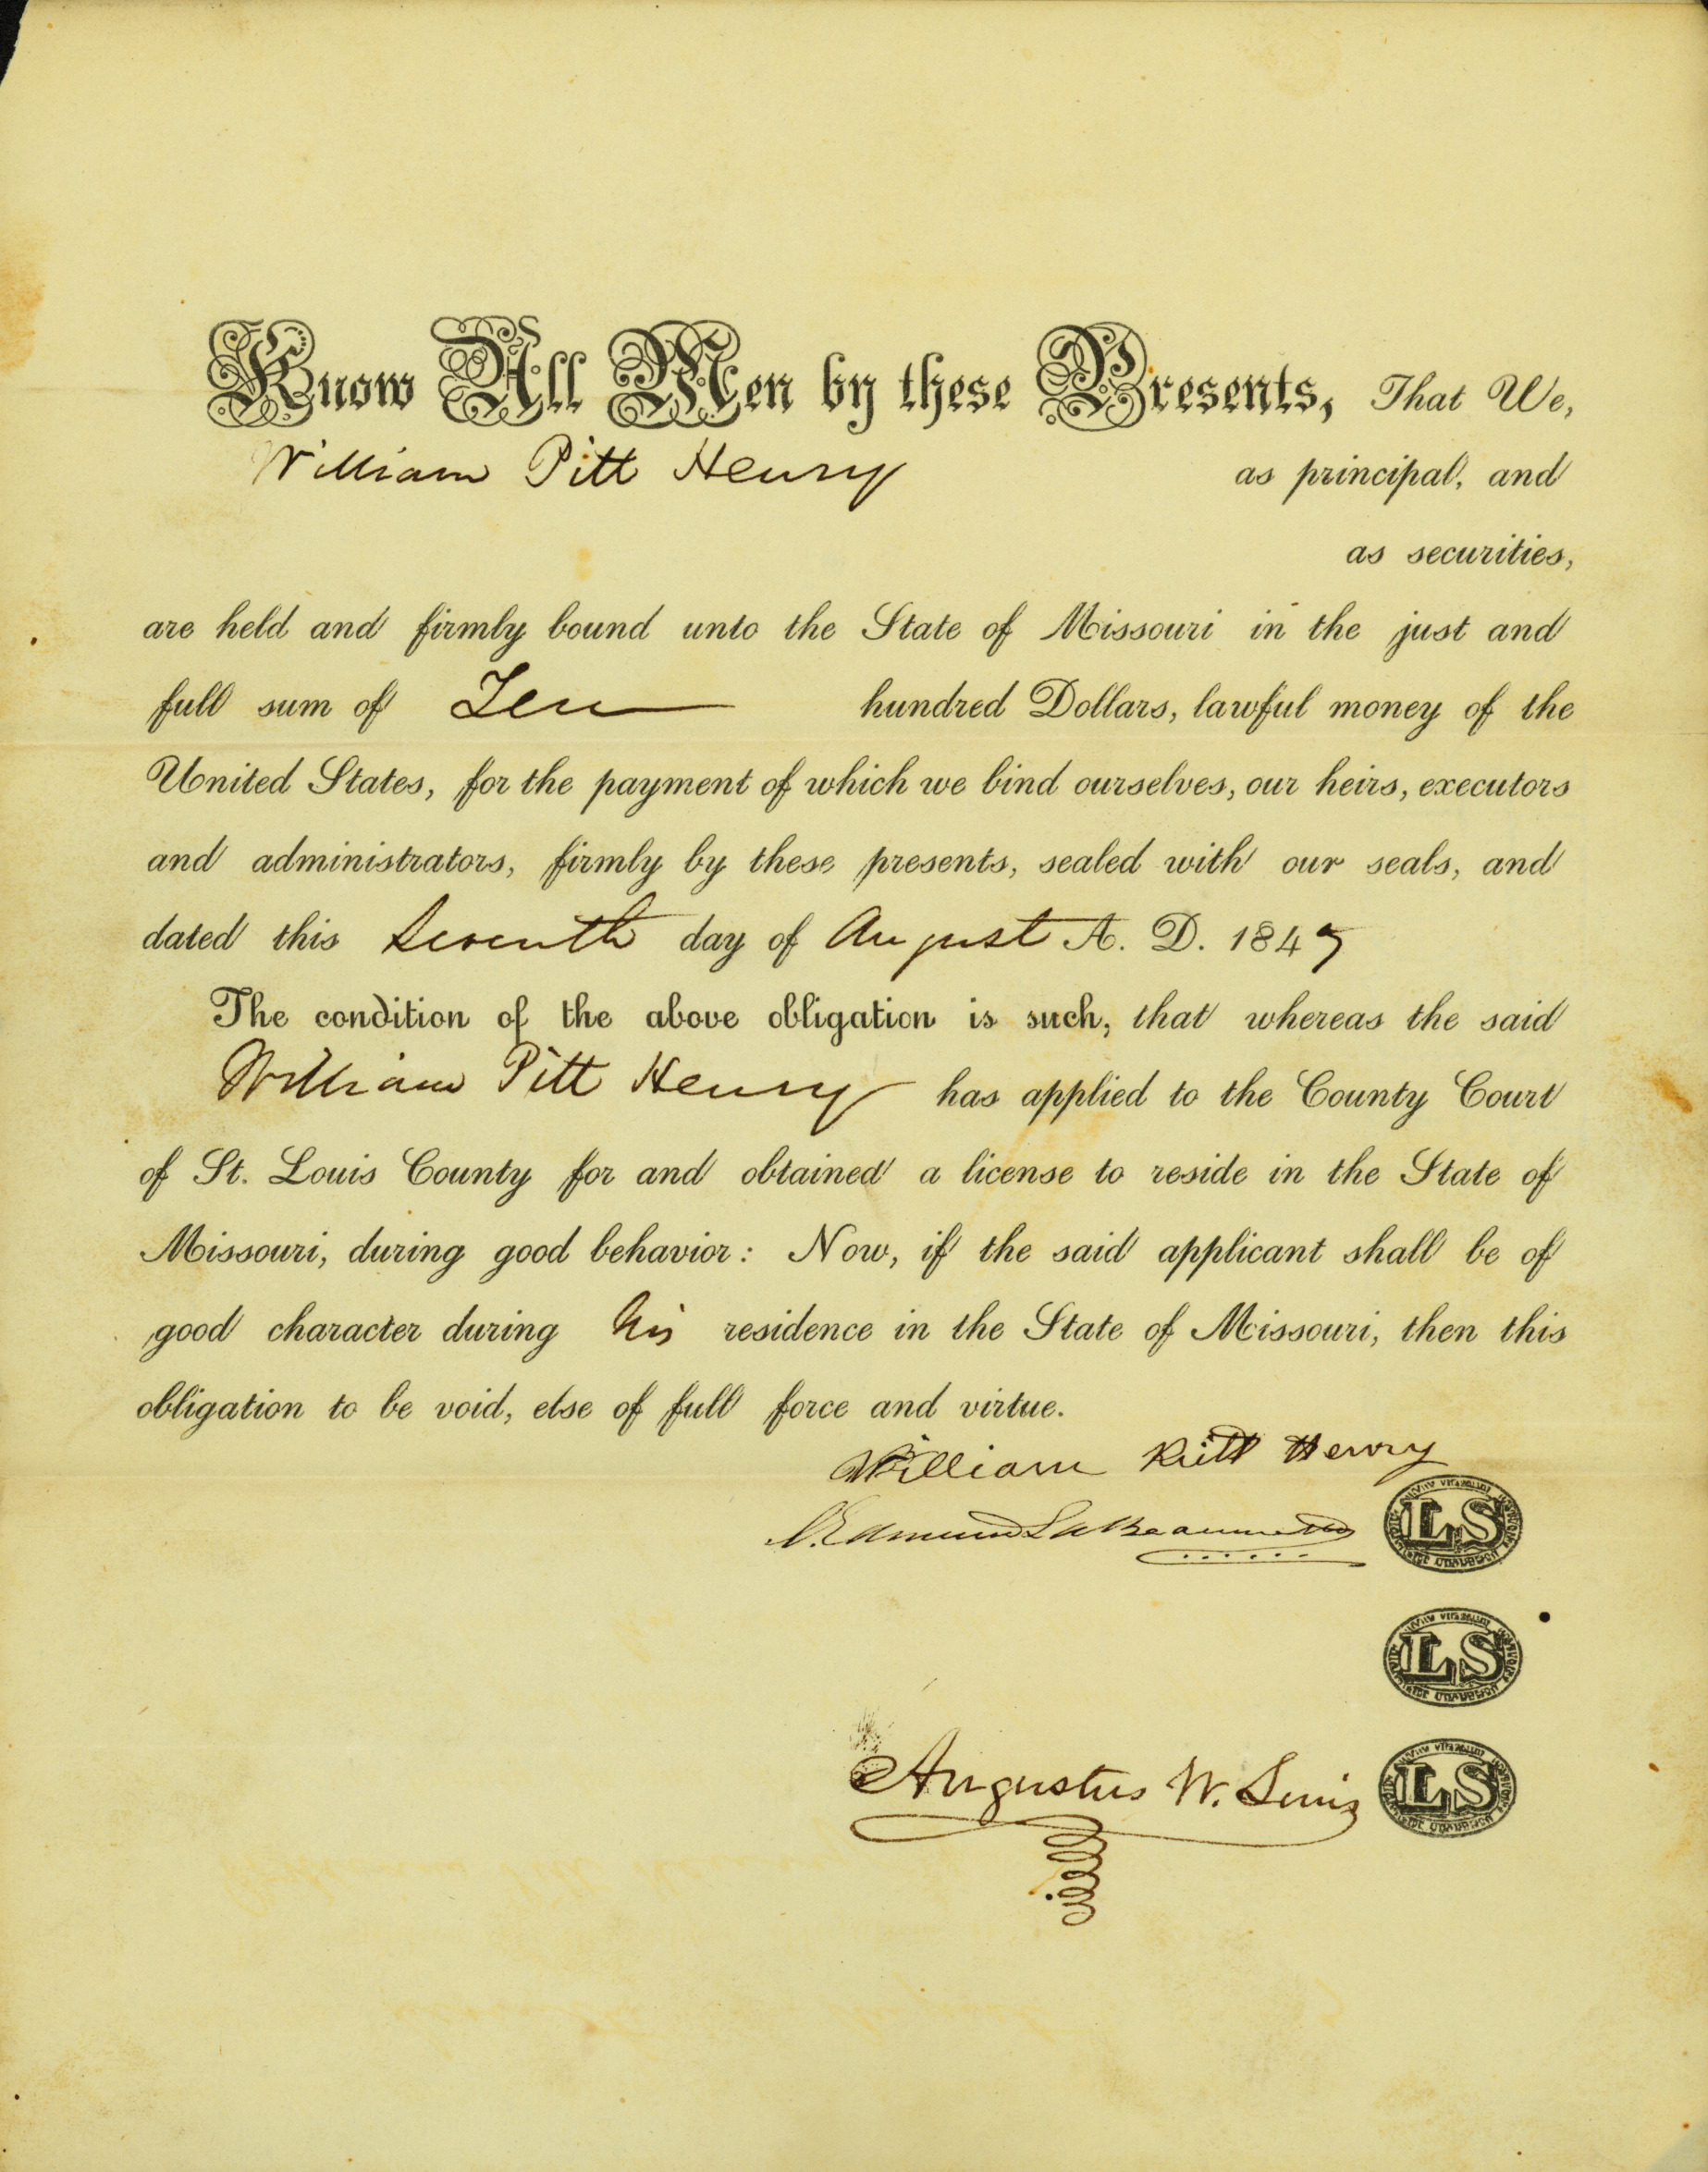 Know All Men by these Presents, That We,
William Pitt Henry as principal, and
as securities,
are held and firmly bound unto the State of Missouri in the just and
full sum of Ten hundred Dollars, lawful money of the
United States, for the payment of which we bind ourselves, our heirs, executors
and administrators, firmly by these presents, sealed with our seals, and
dated this Seventh day of August A. D. 1847
The condition of the above obligation is such, that whereas the said
William Pitt Henry has applied to the County Court
of St. Louis County for and obtained a license to reside in the State of
Missouri, during good behavior: Now, if the said applicant shall be of
good character during his residence in the State of Missouri, then this
obligation to be void, else of full force and virtue.
William Pitt Henry
Edmund LS
LS
Augustus W. LS